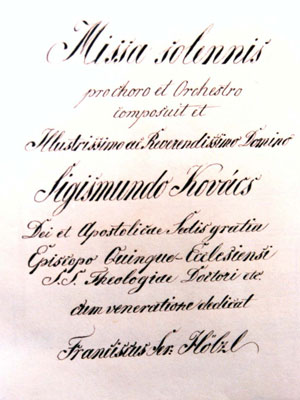 Missa solennis
pro choro et Orchestro
composuit et
Illustrissimo ac Reverendissimo Domino
Sigismundo Kovács
Dei et Apostolicae Sedis gratia
Episcopo Quinque-Ecclesiensi
S.S. Theologiae Doctori etc.
cum veneratione dedicat
Franciscus Ser. Hölzl